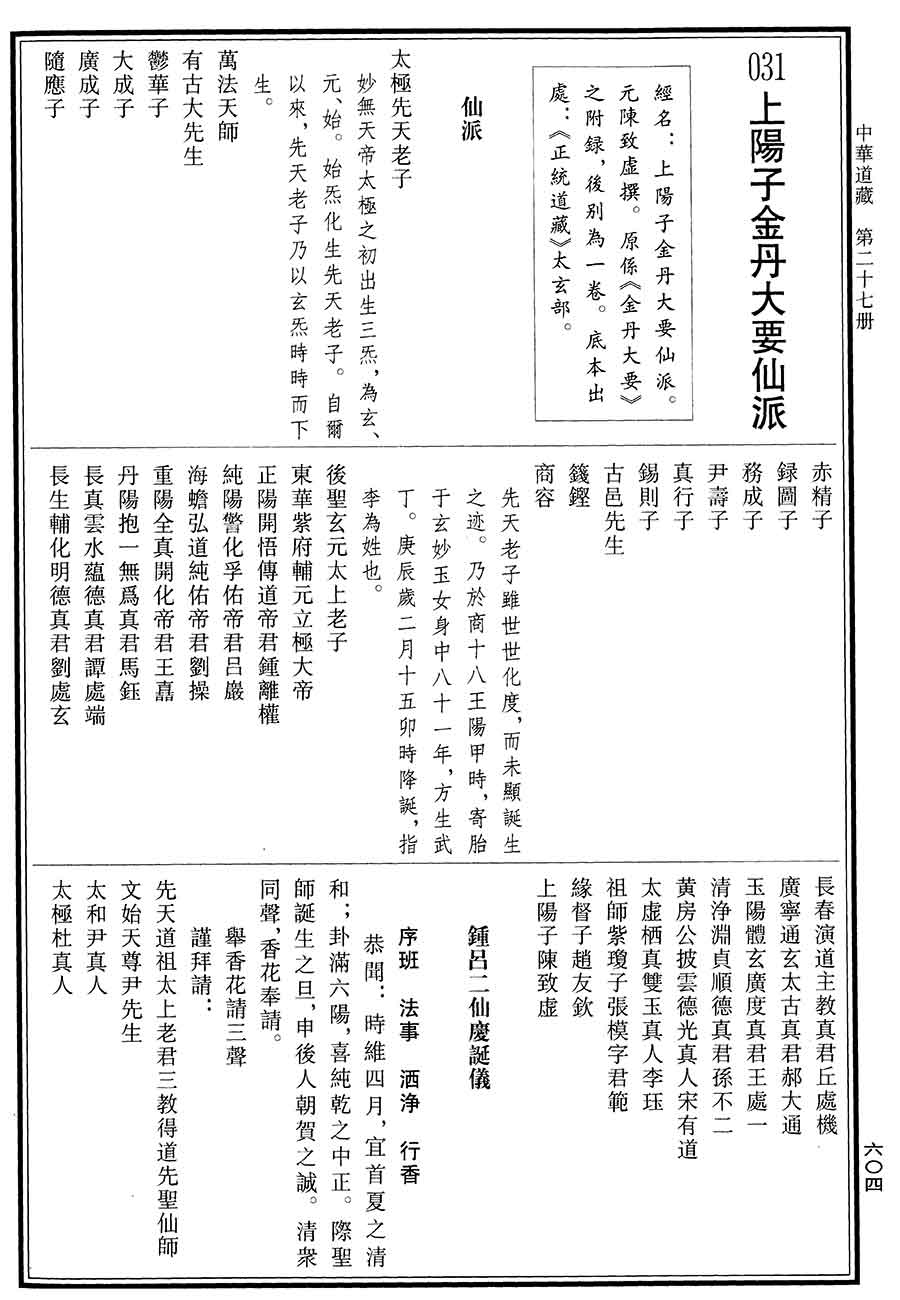 中華道藏　第二十七册
031上陽子金丹大要仙派
經名：上陽子金丹大要仙派。
元陳致虛撰。原係《金丹大要》
之附録，後別為一卷。底本出
處：《正統道藏》太玄部。
仙派
太極先天老子
妙無天帝太極之初出生三炁，為玄、
元、始。始炁化生先天老子。自爾
以來，先天老子乃以玄炁時時而下
生。
萬法天師
有古大先生
鬱華子
大成子
廣成子
隨應子
赤精子
録圖子
務成子
尹壽子
真行子
錫則子
古邑先生
籛鏗
商容
先天老子雖世世化度，而未顯誕生
之迹。乃於商十八王陽甲時，寄胎
于玄妙玉女身中八十一年，方生武
丁。庚辰歲二月十五卯時降誕，指
李為姓也。
後聖玄元太上老子
東華紫府輔元立極大帝
正陽開悟傳道帝君鍾離權
純陽警化孚佑帝君吕巖
海蟾弘道純佑帝君劉操
重陽全真開化帝君王嚞
丹陽抱一無爲真君馬鈺
長真雲水蘊德真君譚處端
長生輔化明德真君劉處玄
長春演道主教真君丘處機
廣寧通玄太古真君郝大通
玉陽體玄廣度真君王處一
清浄淵貞順德真君孫不二
黄房公披雲德光真人宋有道
太虚栖真雙玉真人李珏
祖師紫瓊子張模字君範
緣督子趙友欽
上陽子陳致虚
鍾吕二仙慶誕儀
序班　法事　洒浄　行香
恭聞：時維四月，宜首夏之清
和；卦滿六陽，喜純乾之中正。際聖
師誕生之旦，申後人朝賀之誠。清衆
同聲，香花奉請。
舉香花請三聲
謹拜請：
先天道祖太上老君三教得道先聖仙師
文始天尊尹先生
太和尹真人
太極杜真人
六〇四